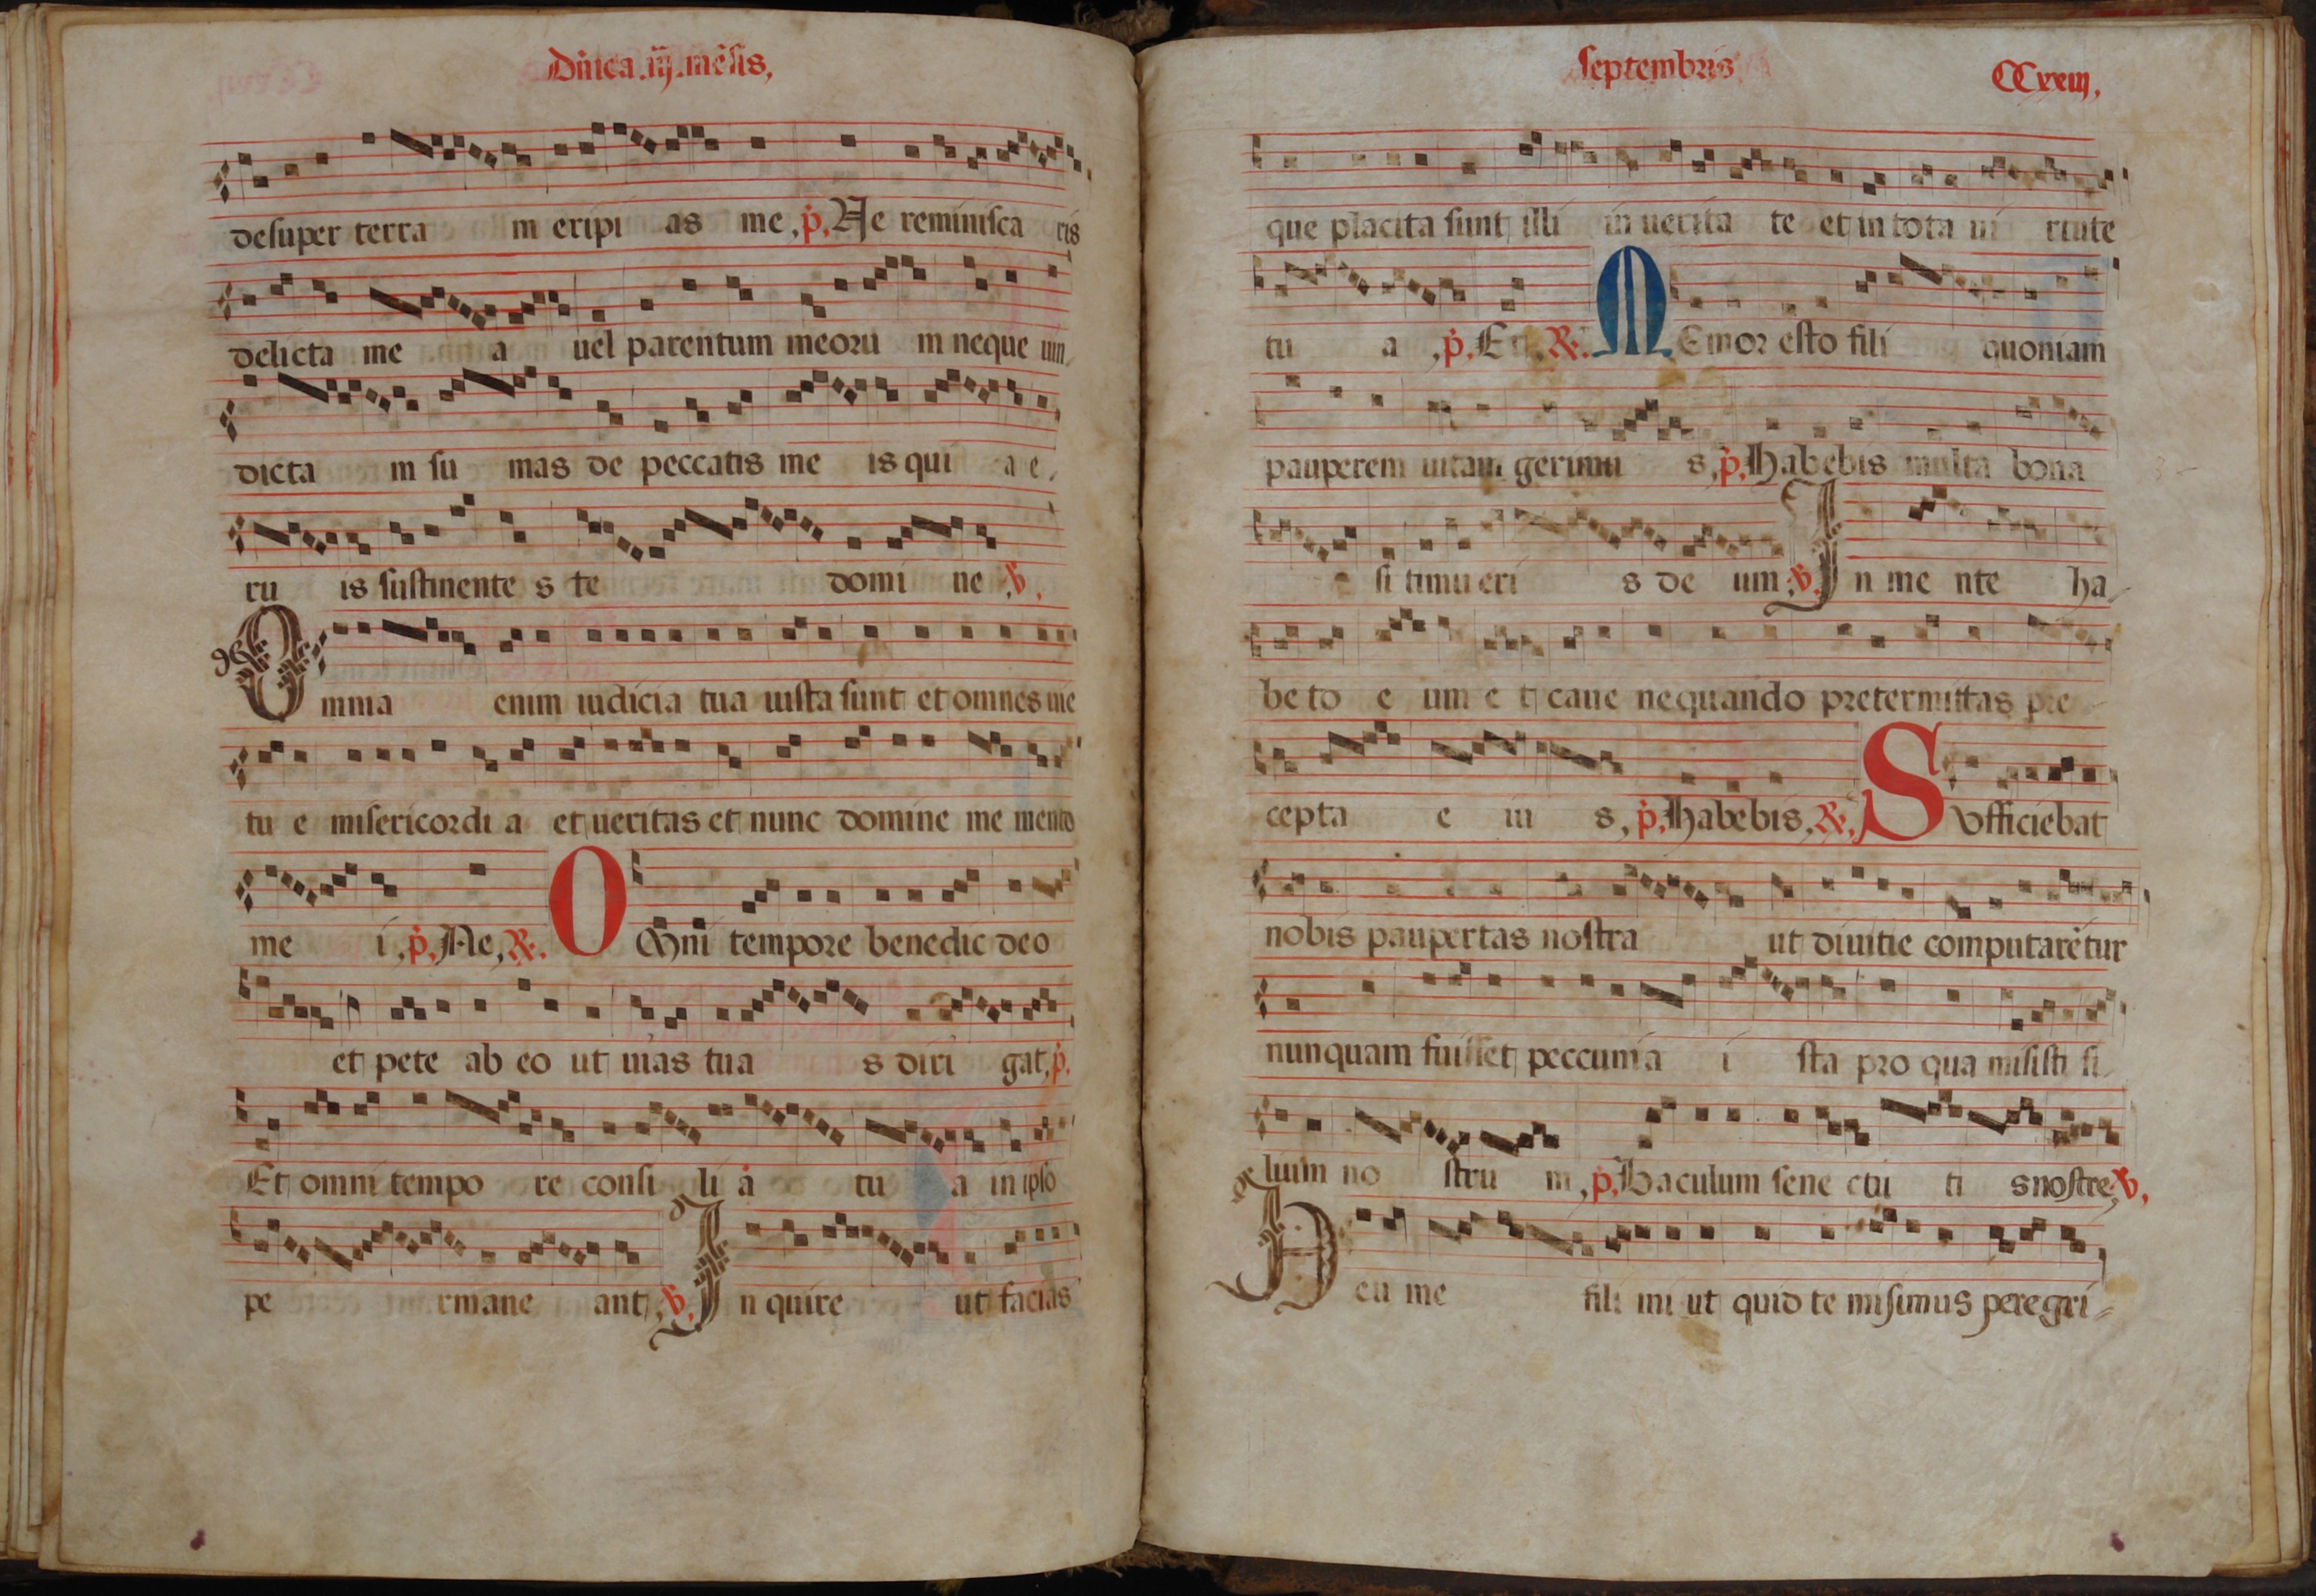 Dñica .iij. mẽsis,
desuper terra m eripi as me, p̃. Ne reminisca ris
delicta me a uel parentum meoru m neque uin
dicta m su mas de peccatis me is qui a e
ru is sustinente s te domi ne ℣.
Omnia enim iudicia tua iusta sunt et omnes uie
tu e misericordi a et ueritas et nunc domine me mento
me i, p̃. Ne, ℟. OMni tempore benedic deo
et pete ab eo ut uias tua s diri gat, p̃.
Et omni tempo re consi li a tu a in ipso
pe rmane ant, ℣. In quire ut facias
septembris CCxxiij,
que placita sunt illi in uerita te et in tota ui rtute
tu a, p̃. Et, ℟. MEmor esto fili quoniam
pauperem uitam gerimu s, p̃. Habebis multa bona
si timu eri s de um, ℣. In me nte ha
be to e um e t caue nequando pretermittas pre
cepta e iu s, p̃. Habebis, ℟. Sufficiebat
nobis paupertas nostra ut diuitie computarẽtur
nunquam fuisset peccunia i sta pro qua misisti fi
lium no stru m, p̃. Baculum sene ctu ti s nostre, ℣.
Heu me fili mi ut quid te misimus peregri